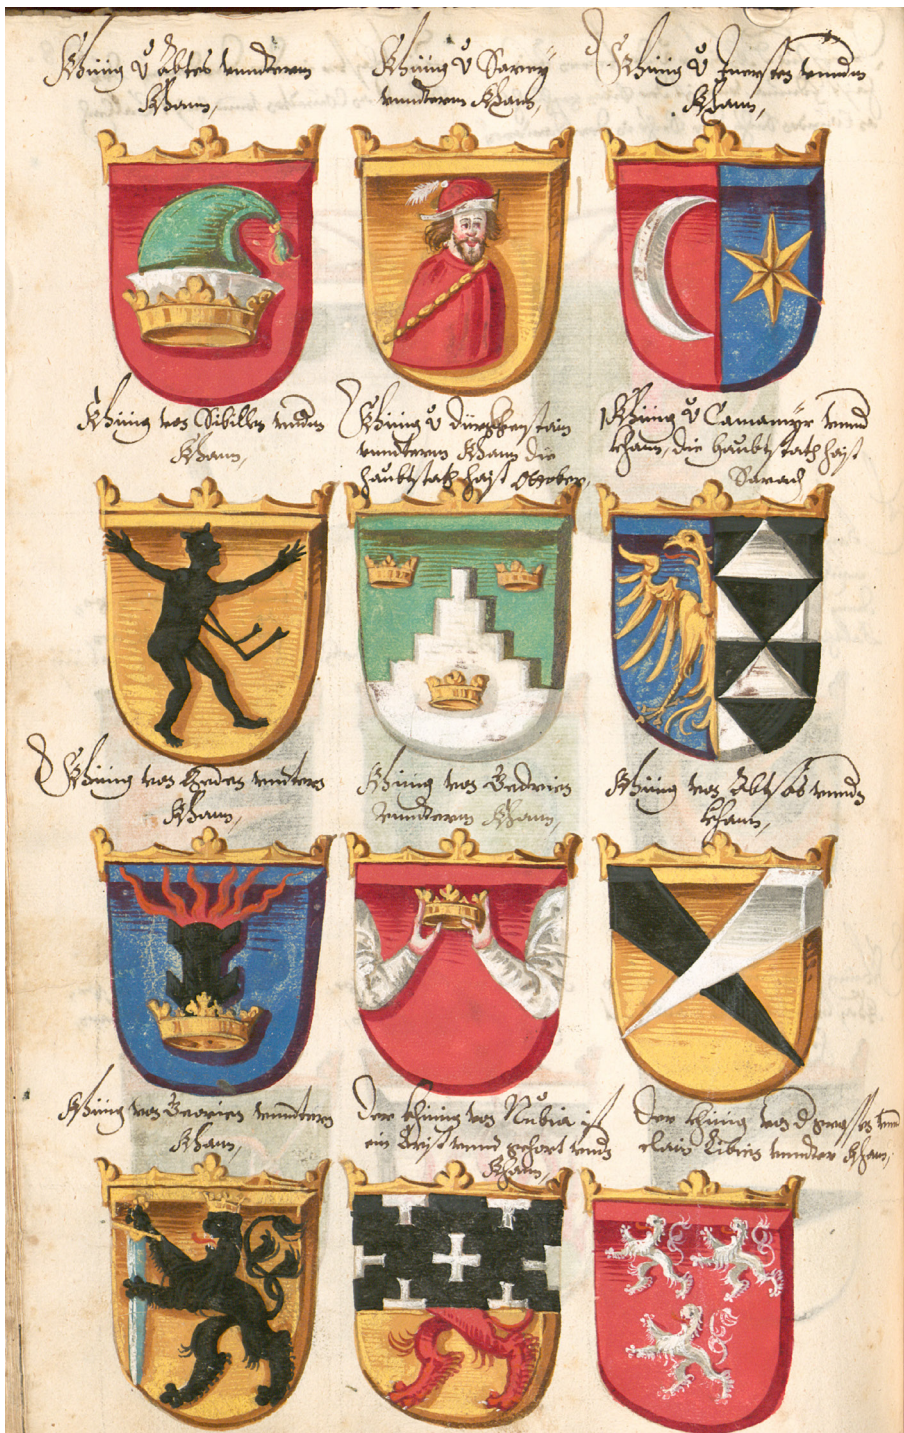 Khüng ů Abtes vnnderm
Khann,
Khüng ů Sarey
vnnderm Khann,
Khüng ů Inersten vnnderm
Khann,
Khüng von Sibillen vnnderm
Khann,
Khüng ů dürgkhen stain
vnnderm Khann die
haubtstath haist Ottober,
Khüng ů Camamyr vnnd
khann, die haubtstath haist
Sarach
Khüng von Geden vnnterm
Khann,
Khünig von Bedrien
vnnderm Khann,
Khüng von Abtsas vnnder
khann,
Khüng von Beorien vnnterm
Khann,
Der khünig von Nubia ist
ein Crist vnnd gehort vnder
Khann,
Der khünig von
clain vnnder Khann,